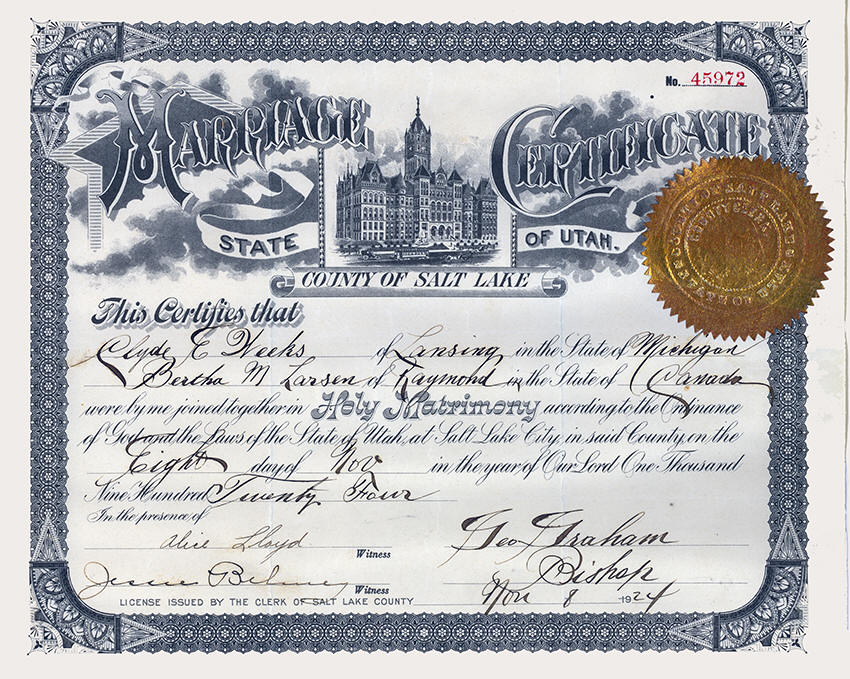 No. 45972
MARRIAGE CERTIFICATE
STATE OF UTAH.
COUNTY OF SALT LAKE
This Certifies that
Clyde E Weeks of Lansing in the State of Michigan
Bertha M Larsen of Raymond in the State of Canada
were by me joined together in Holy Matrimony according to the Ordinance
of God and the Laws of the State of Utah, at Salt Lake City, in said County, on the
Eight day of Nov in the year of Our Lord One Thousand
Nine Hundred Twenty Four
In the presence of
Alice Lloyd Witness
Geo Graham
Bishop
Jessie Witness
Nov 8 1924
LICENSE ISSUED BY THE CLERK OF SALT LAKE COUNTY